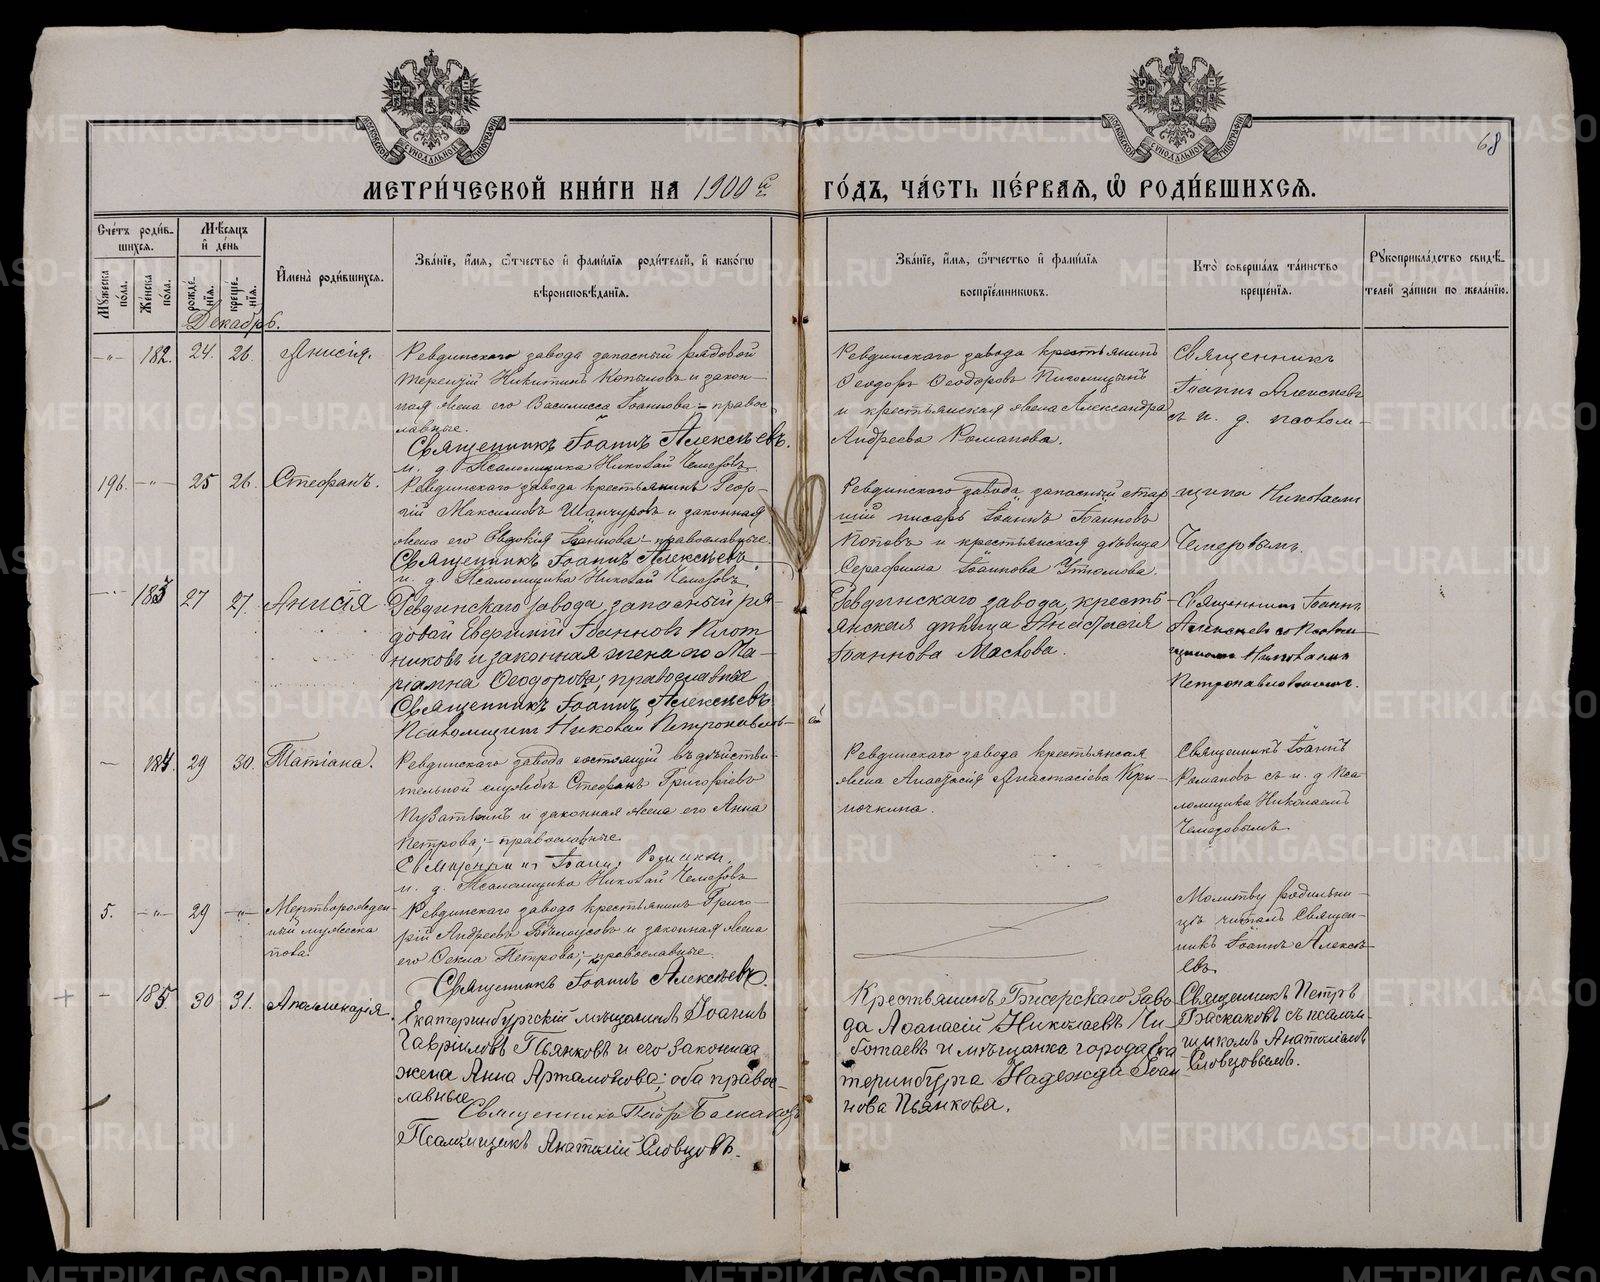 МОСКОВСКОЙ СѴНОДАЛЬНОЙ ТИПОГРАФІИ
МОСКОВСКОЙ СѴНОДАЛЬНОЙ ТИПОГРАФІИ
68
МЕТРИ́ЧЕСКОЙ КНИ́ГИ НА 1900 й
ГО́ДЪ, ЧА́СТЬ ПЕ́РВАЯ, Ѽ РОДИ́ВШИХСЯ.
Сче́тъ роди́в-
шихся.
Мꙋ́жеска по́ла.
Же́нска по́ла.
Мѣ́сяцъ и́ де́нь
рожде́-
нїя.
креще́-
нїя.
И҆мена̀ роди́вшихся.
Зва́нїе, и҆́мя, ѻ҆́тчество и҆ фами́лїя роди́телей, и҆ како́гѡ
вѣроисповѣ́данїя.
Зва́нїе, и҆́мя, ѻ҆́тчество и҆ фами́лїя
воспрїе́мниковъ.
Кто̀ соверша́лъ та́инство
креще́нїя.
Рꙋкоприкла́дство свидѣ́-
телей за́писи по жела́нїю.
Декабрь.
—„— 182. 24. 26. Анисія.
Ревдинскаго завода запасный рядовой
Терентій Никитинъ Копыловъ и закон-
ная жена его Василисса Іоаннова - правос-
лавные.
Священникъ Іоаннъ Алексѣевъ.
и. д. Псаломщика Николай Чемезовъ
Ревдинскаго завода крестьянинъ
Ѳеодоръ Ѳеодоровъ
и крестьянская жена Александра
Андреева Романова.
Священникъ
Іоаннъ Алексѣевъ
съ и. д. псалом-
196. —„— 25 26. Стефанъ.
Ревдинскаго завода крестьянинъ Геор-
гій Максимовъ Шанчуровъ и законная
жена его Евдокія Іоаннова - православные.
Священникъ Іоаннъ Алексѣевъ.
и. д. Псаломщика Николай Чемезовъ
Ревдинскаго завода запасный стар-
шій писарь Іоаннъ Іоанновъ
Поповъ и крестьянская дѣвица
Серафима Іоаннова Утюмова.
щика Николаемъ
Чемезовымъ.
—„— 183 27 27. Анисія
Ревдинскаго завода, запасный ря-
довой Евгений Іоанновъ Плот
никовъ и законная жена его Ма-
ріамна Ѳеодорова, православные
Священникъ Іоаннъ Алексѣевъ
Псаломщикъ Николай Петропавлов-
скій
Ревдинскаго завода, кресть-
янская дѣвица Анастасія
Іоаннова Маслова.
Священникъ Іоаннъ
Алексѣевъ со псалом-
щикомъ Николаемъ
Петропавловскимъ.
— 184. 29 30. Татіана.
Ревдинскаго завода состоящій въ дѣйстви-
тельной службѣ Стефанъ Григоріевъ
Пузаткинъ и законная жена его Анна
Петрова; - православные
Священникъ Іоаннъ Романовъ.
и. д. Псаломщика Николай Чемезовъ
Ревдинскаго завода крестьянская
жена Анастасія Анастасіева Кры-
почкина.
Священникъ Іоаннъ
Романовъ съ и. д. Пса
ломщика Николаемъ
Чемезовымъ
5. —„— 29 —„— Мертворожден-
ный мужеска
пола.
Ревдинскаго завода крестьянинъ Григо-
рій Андреевъ Бѣлоусовъ и законная жена
его Ѳекла Петрова; - православные.
Священникъ Іоаннъ Алексѣевъ.
Молитву родильни-
цѣ читалъ Священ-
никъ Іоаннъ Алексѣ-
евъ
+ — 185 30 31. Аполлинарія.
Екатеринбургскій мѣщанинъ Іоаннъ
Гавріиловъ Пьянковъ и его законная
жена Анна Артамонова; оба правос-
лавные
Священникъ Петръ Баскаковъ
Псаломщикъ Анатолій Словцовъ.
Крестьянинъ Бисерскаго заво
да Аѳанасій Николаевъ Чи-
ботаевъ и мѣщанка города Ека
теринбурга Надежда Іоан
нова Пьянкова.
Священникъ Петръ
Баскаковъ съ псалом-
щикомъ Анатоліемъ
Словцовымъ.